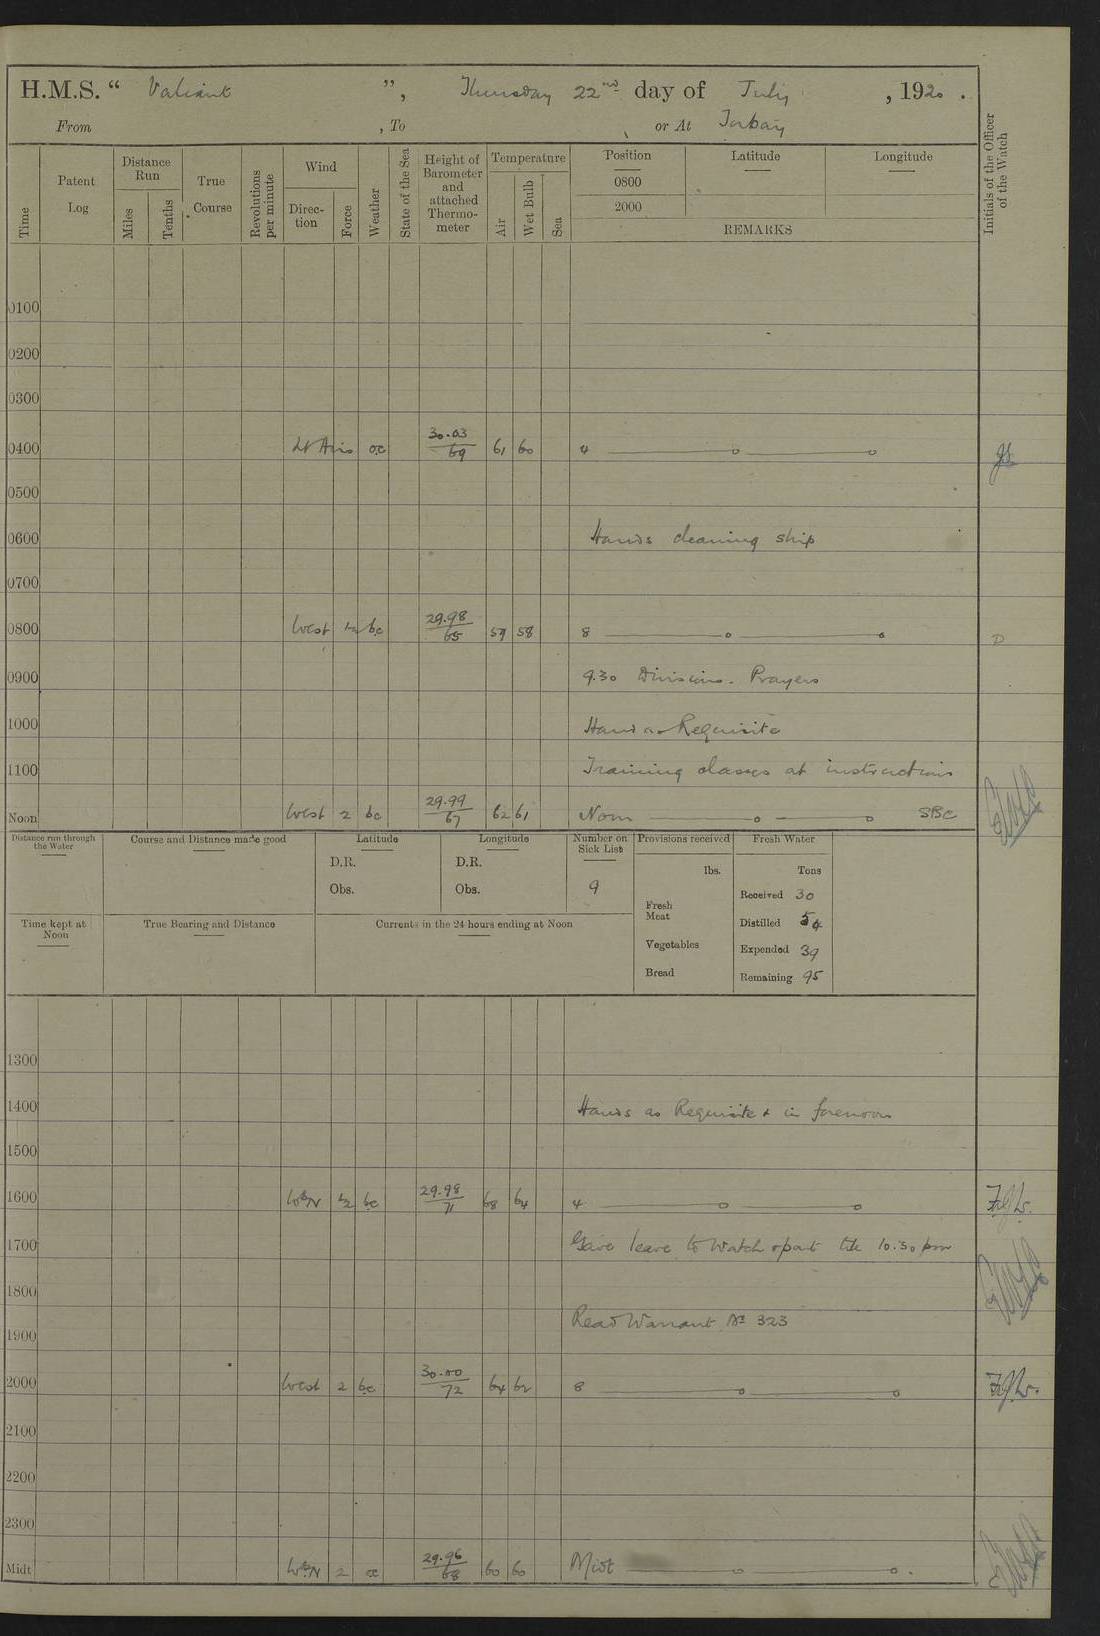 H.M.S. “ Valiant ”, Thursday 22nd day of July, 1920.
From , To or At Torbay
Time
Patent Log
Distance Run
Miles
Tenths
True Course
Revolutions per minute
Wind
Direction
Force
Weather
State of the Sea
Height of Barometer and attached Thermometer
Temperature
Air
Wet Bulb
Sea
Position
0800
2000
Latitude
Longitude
REMARKS
Initials of the Officer of the Watch
0100
0200
0300
0400 Lt Airs oc 30.03/69 61 60 4
0500
0600 Hands cleaning ship
0700
0800 West 1/2 bc 29.98/65 59 58 8 D
0900 9.30 Divisions. Prayers
1000 Hands as Requisite
1100 Training classes at instructions
Noon West 2 bc 29.99/67 62 61 Noon SBC
Distance run through the Water
Course and Distance made good
Latitude
D.R.
Obs.
Longitude
D.R.
Obs.
Number on Sick List
9
Provisions received
lbs.
Fresh Meat
Vegetables
Bread
Fresh Water
Tons
Received 30
Distilled 54
Expended 39
Remaining 95
Time kept at Noon
True Bearing and Distance
Currents in the 24 hours ending at Noon
1300
1400 Hands as Requisite & in forenoon
1500
1600 WbN 1/2 bc 29.98/71 68 64 4
1700 Gave leave to watch & part till 10.30 pm
1800
Read Warrant No 323
1900
2000 West 2 bc 30.00/72 64 62 8
2100
2200
2300
Midt WbN 2 oc 29.96/68 60 60 Midt